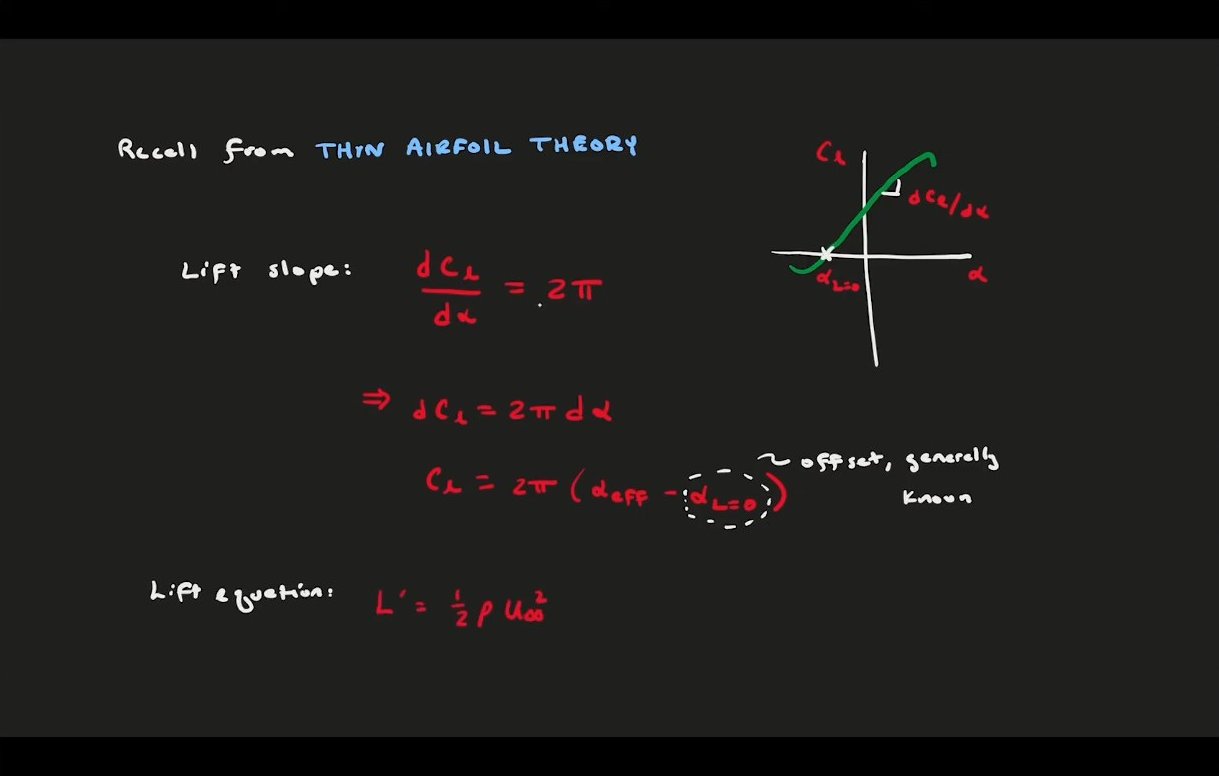 Recall from THIN AIRFOIL THEORY
Cₗ
dCₗ/dα
α_L=0
α
Lift slope: dCₗ/dα = 2π
⇒ dCₗ = 2π dα
Cₗ = 2π (α_eff - α_L=0)
offset, generally
known
Lift equation: L' = 1/2 ρ U∞²